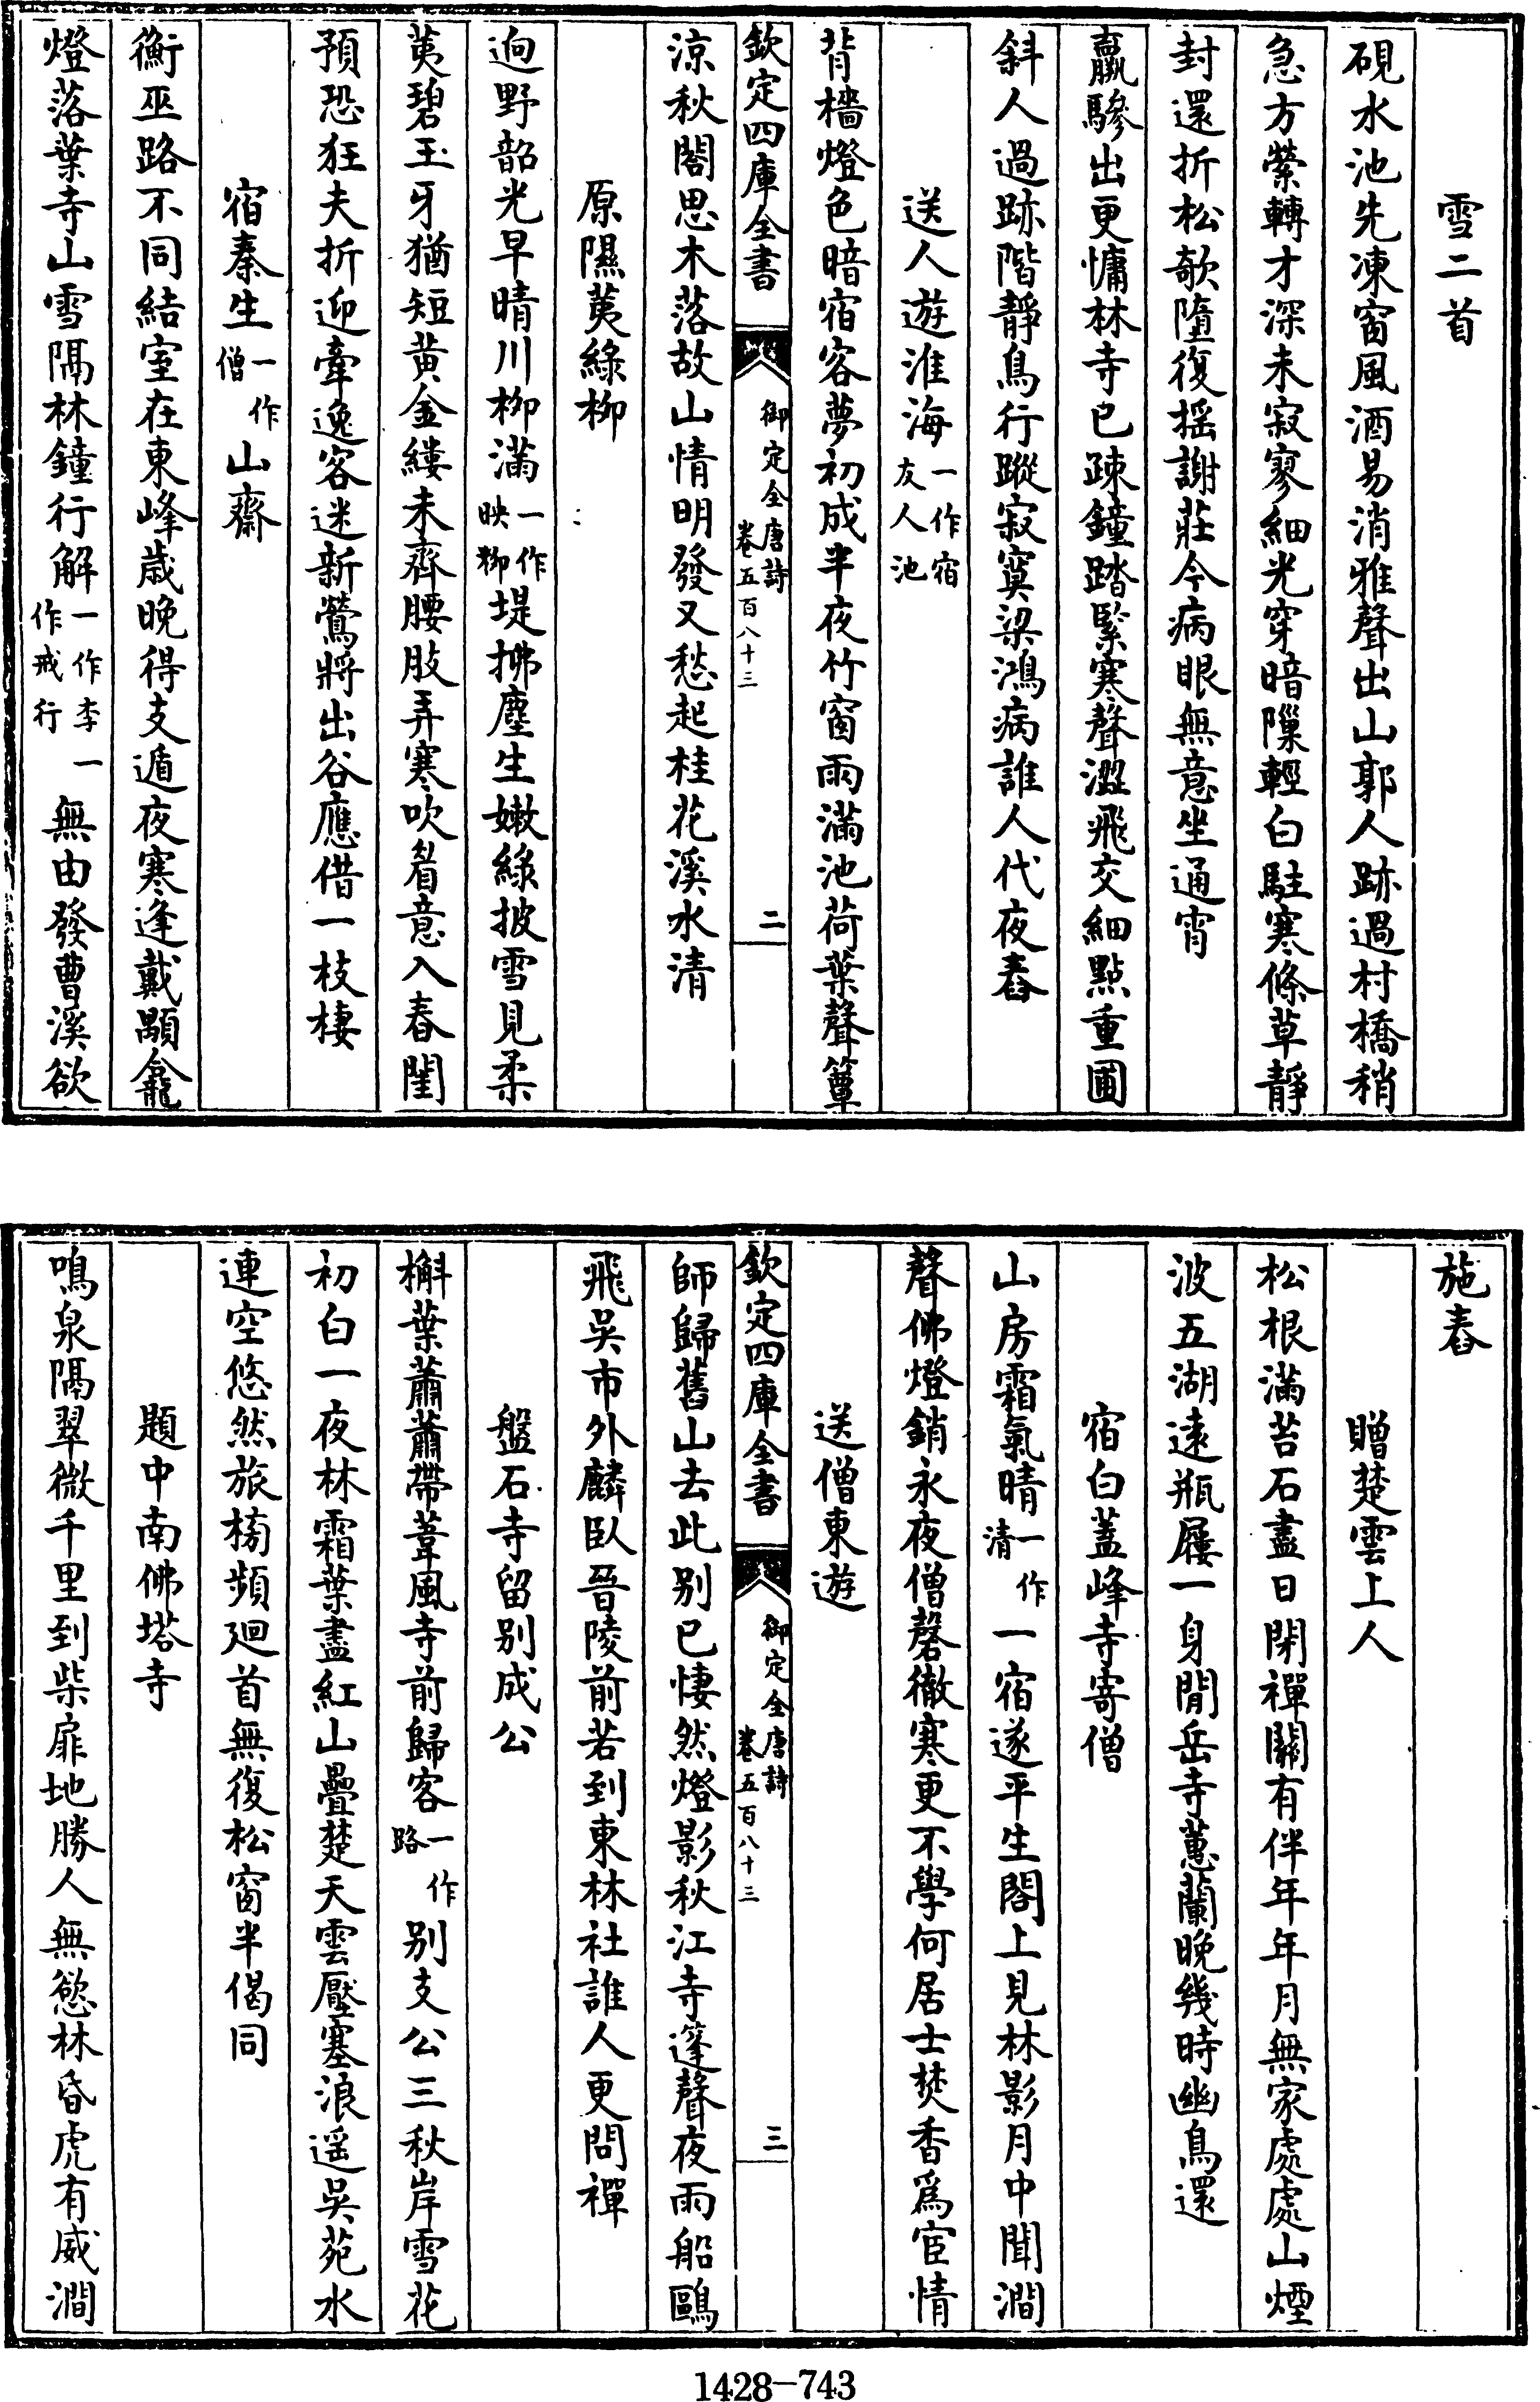 雪二首
硯水池先凍窗風酒易消雅聲出山郭人跡過村橋稍
急方縈轉才深未寂寥細光穿暗隟輕白駐寒條草靜
封還折松欹墮復摇謝莊今病眼無意坐通宵
羸驂出更慵林寺已疎鐘踏緊寒聲澀飛交細點重圃
斜人過跡階靜鳥行蹤寂寞梁鴻病誰人代夜舂
送人遊淮海一作宿友人池
背檣燈色暗宿客夢初成半夜竹窗雨滿池荷葉聲簟
欽定四庫全書 御定全唐詩 卷五百八十三 二
涼秋閣思木落故山情明發又愁起桂花溪水清
原隰荑綠柳
迥野韶光早晴川柳滿一作映柳堤拂塵生嫩綠披雪見柔
荑碧玉牙猶短黃金縷未齊腰肢弄寒吹眉意入春閨
預恐狂夫折迎牽逸客迷新鶯將出谷應借一枝棲
宿秦生一作僧山齋
衡巫路不同結室在東峰歲晚得支遁夜寒逢戴顒龕
燈落葉寺山雪隔林鐘行解一作李一作戒行無由發曹溪欲
施舂
贈楚雲上人
松根滿苔石盡日閉禪關有伴年年月無家處處山煙
波五湖遠瓶屨一身閒岳寺蕙蘭晚幾時幽鳥還
宿白蓋峰寺寄僧
山房霜氣晴一作清一宿遂平生閣上見林影月中聞澗
聲佛燈銷永夜僧磬徹寒更不學何居士焚香爲宦情
送僧東遊
欽定四庫全書 御定全唐詩 卷五百八十三 三
師歸舊山去此别已悽然燈影秋江寺蓬聲夜雨船鷗
飛吳市外麟臥晉陵前若到東林社誰人更問禪
盤石寺留别成公
槲葉蕭蕭帶葦風寺前歸客一作路别支公三秋岸雪花
初白一夜林霜葉盡紅山疊楚天雲壓塞浪遥吳苑水
連空悠然旅榜頻廻首無復松窗半偈同
題中南佛塔寺
鳴泉隔翠微千里到柴扉地勝人無慾林昏虎有威澗
1428-743